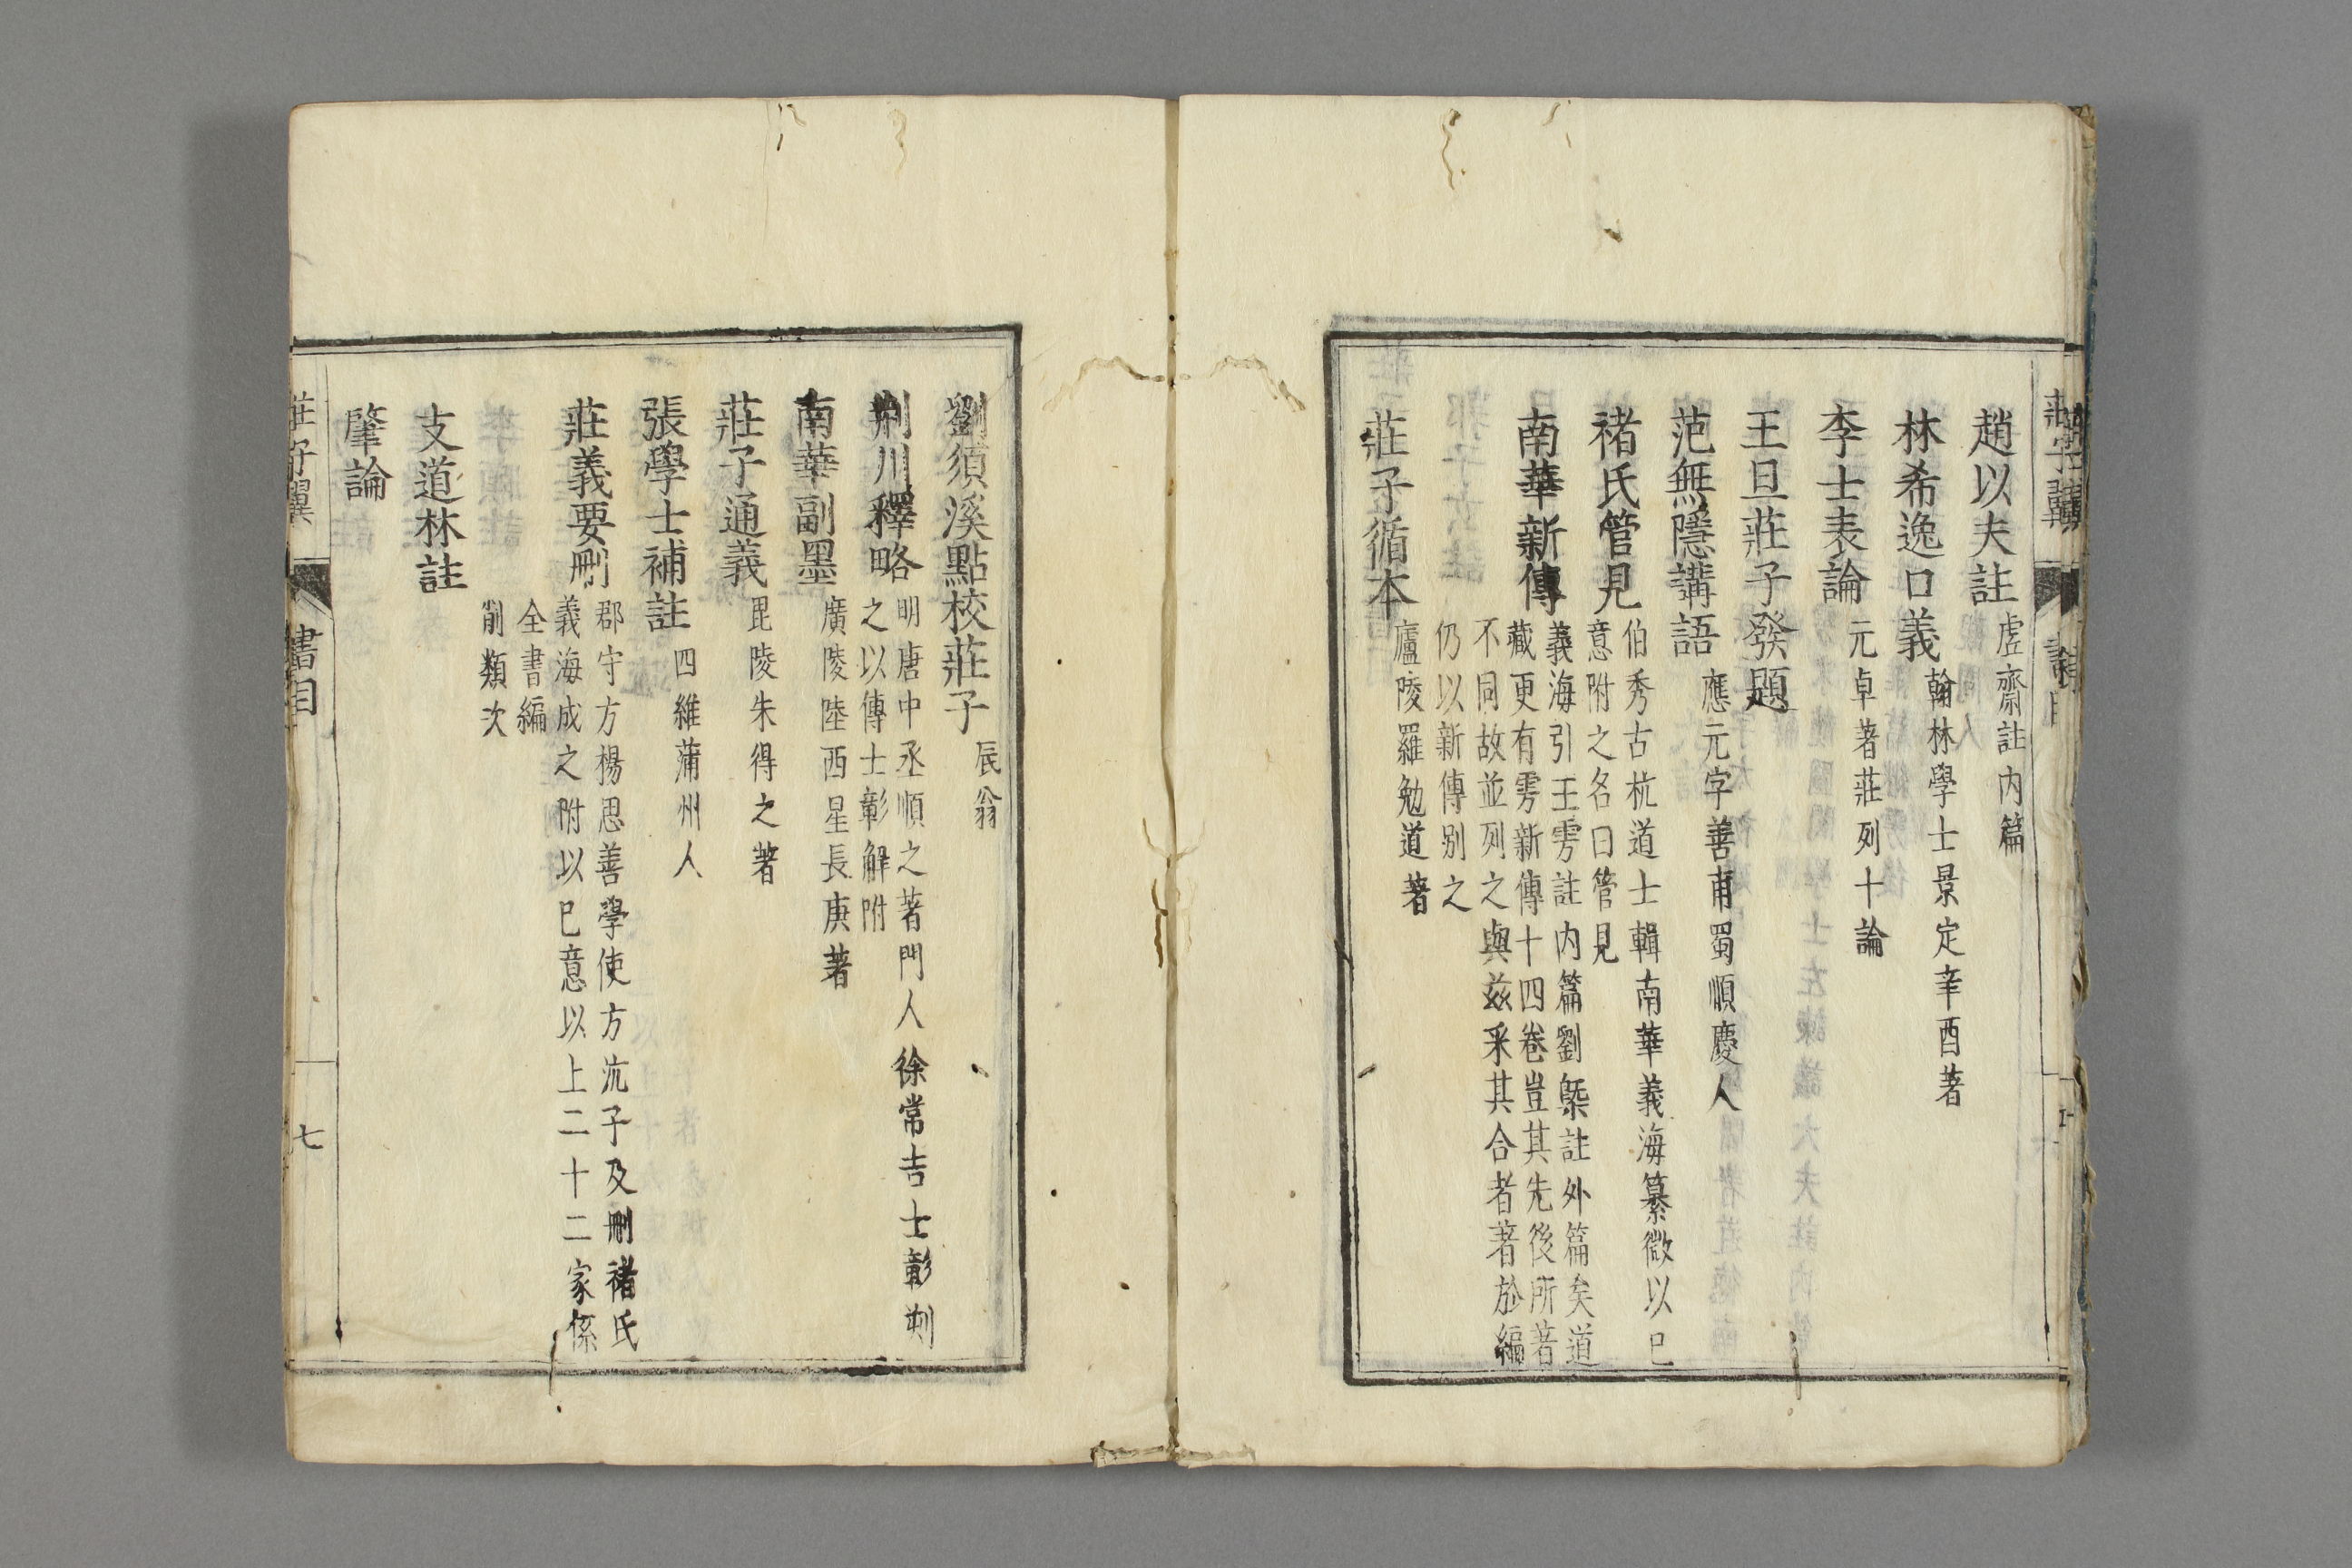 趙以夫註 虗齋註內篇
林希逸口義 翰林學士景定辛酉著
李士表論 元卓著莊列十論
王旦莊子發題
范無隱講語 應元字善甫蜀順慶人
褚氏管見 伯秀古杭道士輯南華義海纂微以已
意附之名曰管見
南華新傳 義海引王雱註內篇劉槩註外篇矣道
藏更有雱新傳十四卷豈其先後所著
不同故並列之與兹釆其合者著於編
仍以新傳别之
莊子循本 廬陵羅勉道著
劉須溪點校莊子 辰翁
荆川釋略 明唐中丞順之著門人徐常吉士彰刾
之以傳士彰解附
南華副墨 廣陵陸西星長庚著
莊子通義 毘陵朱得之著
張學士補註 四維蒲州人
莊義要刪 郡守方楊思善學使方沆子及刪褚氏
義海成之附以已意以上二十二家係
全書編
削類次
支道林註
肇論
莊子翼
書目
七